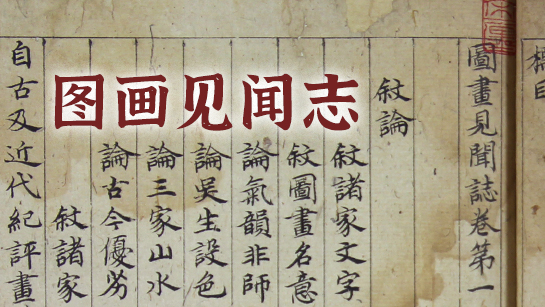 图画见闻志
圖畫見聞誌卷第一
敘論
敘諸家文字
敘圖畫名意
論氣韻非師
論吳生設色
論三家山水
論古今優劣
敘諸家
自古及近代紀評畫